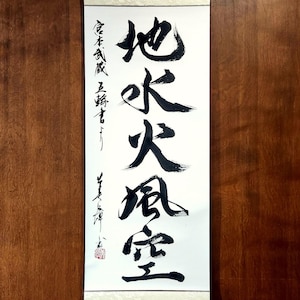 地水火風空
宮本武蔵 五輪書より